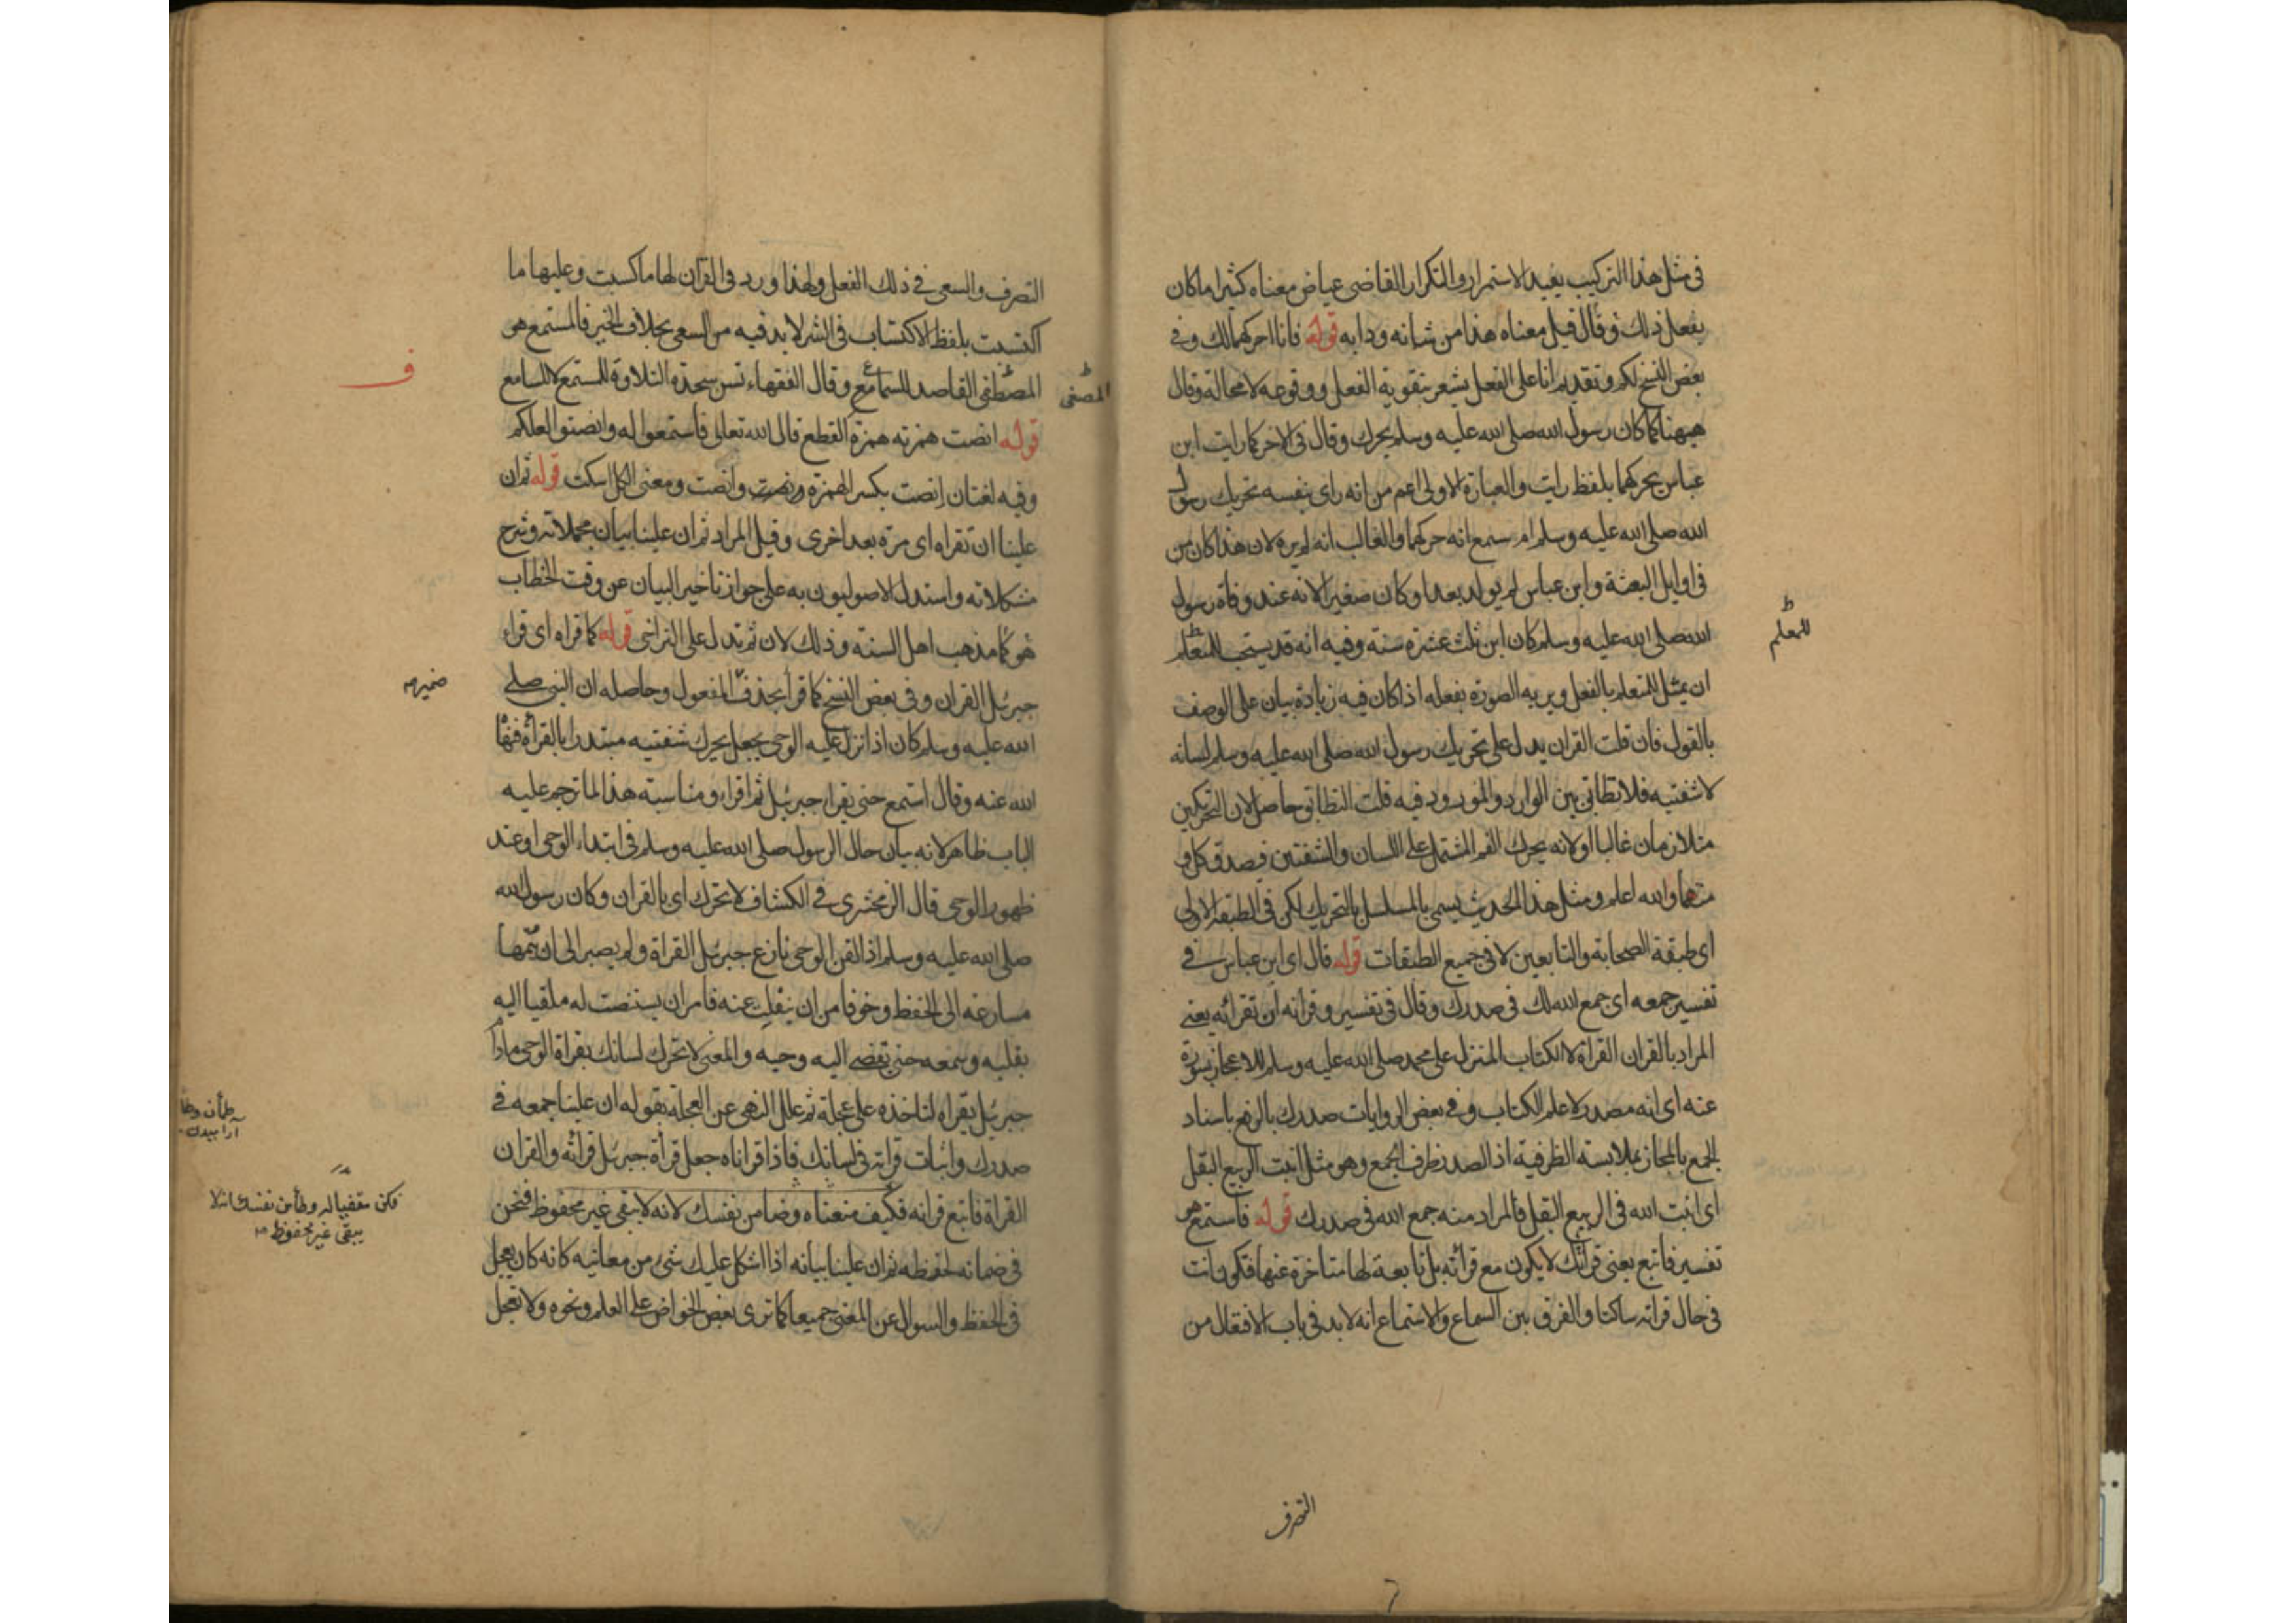 في مثل هذا التركيب يفيد الاستمرار والتكرار القاضى عياض معناه كثيرا ما كان
يفعل ذلك وقال قيل معناه هذا من شانه ودابه قوله فانا احركهما لك وفي
بعض النسخ لكم وتقديم انا على الفعل يشعر بتقوية الفعل ووقوعه لا محالة وقال
ههنا كما كان رسول الله صلى الله عليه وسلم يحرك وقال فى الاخر كما رايت ابن
عباس يحركهما بلفظ رايت والعبارة الاولى اعم من انه راى بنفسه تحريك رسول
الله صلى الله عليه وسلم ام سمع انه حركهما والغالب انه لم يره لان هذا كان من
فى اوايل البعثة وابن عباس لم يولد بعد او كان صغيرا لانه عند وفاة رسول
الله صلى الله عليه وسلم كان ابن ثلث عشرة سنة وفيه انه قد يستحب للمتعلم
للمعلم
ان يمثل للمتعلم بالفعل ويريه الصورة بفعله اذا كان فيه زيادة بيان على الوصف
بالقول فان قلت القران يدل على تحريك رسول الله صلى الله عليه وسلم لسانه
لا شفتيه فلا تطابق بين الوارد والمورود فيه قلت التطابق حاصل لان التحريكين
متلازمان غالبا او لانه يحرك الفم المشتمل على اللسان والشفتين فيصدق كل
منهما والله اعلم ومثل هذا الحديث يسمى بالمسلسل بالتحريك لكن فى الطبقة الاولى
اى طبقة الصحابة والتابعين لا فى جميع الطبقات قوله قال اى ابن عباس في
تفسير جمعه اى جمع الله لك فى صدرك وقال فى تفسير وقرانه ان تقرائه يعنى
المراد بالقران القراة لا الكتاب المنزل على محمد صلى الله عليه وسلم للاعجاز بسورة
عنه اى انه مصدر لا علم الكتاب وفى بعض الروايات صدرك بالرفع باسناد
الجمع بالمجاز بملابسة الظرفية اذ الصدر ظرف الجمع وهو مثل انبت الربيع البقل
اى انبت الله فى الربيع البقل فالمراد منه جمع الله فى صدرك قوله فاستمع هو
تفسير فاتبع يعنى قرائتك لا يكون مع قرائته بل تابعة لها متاخرة عنها فتكون انت
فى حال قراته ساكتا والفرق بين السماع والاستماع انه لا بد فى باب الافتعال من
التصرف
التصرف والسعى في ذلك الفعل ولهذا ورد فى القران لها ما كسبت وعليها ما
اكتسبت بلفظ الاكتساب فى الشر لا بد فيه من السعى بخلاف الخير فالمستمع هو
المصطفى القاصد للسمائع وقال الفقهاء تسن سجدة التلاوة للمستمع لا للسامع
المصغى
ف
قوله انصت همزته همزة القطع قال الله تعالى فاستمعوا له وانصتوا لعلكم
وفيه لغتان انصت بكسر الهمزة ونصت وانصت ومعنى الكل اسكت قوله ثم ان
علينا ان تقراه اى مرة بعد اخرى وقيل المراد ثم ان علينا بيان مجملاته وشرح
مشكلاته واستدل الاصوليون به على جواز تاخير البيان عن وقت الخطاب
هو كما مذهب اهل السنة وذلك لان ثم تدل على التراخى قوله كما قراه اى قراء
جبرئيل القران وفى بعض النسخ كما قرا بحذف المفعول وحاصله ان النبى صلى
ضمير
الله عليه وسلم كان اذا نزل عليه الوحى يجعل يحرك شفتيه مبتدرا بالقراة فنهاه
الله عنه وقال استمع حتى يقرا جبرئيل ثم اقراء ومناسبة هذا لما ترجم عليه
الباب ظاهر لانه بيان حال الرسول صلى الله عليه وسلم فى ابتداء الوحى او عند
ظهور الوحى قال الزمخشرى في الكشاف لا تحرك اى بالقران وكان رسول الله
صلى الله عليه وسلم اذا لقن الوحى نازع جبرئيل القراة ولم يصبر الى ان يتمها
مسارعة الى الحفظ وخوفا من ان ينفلت عنه فامر ان يستنصت له ملقيا اليه
بقلبه وسمعه حتى يقضى اليه وحيه والمعنى لا تحرك لسانك بقراة الوحى مادام
جبرئيل يقراه لتاخذه على عجلة ثم علل النهى عن العجلة بقوله ان علينا جمعه في
صدرك واثبات قراته فى لسانك فاذا قراناه جعل قراة جبرئيل قرائه والقران
القراة فاتبع قرانه فكيف منعناه وضامن نفسك لانه لا يبقى غير محفوظ فنحن
فكن مقفيا له وطأمن نفسك انه لا
يبقى غير محفوظ
فى ضمانه لحفظه ثم ان علينا بيانه اذا اشكل عليك شىء من معانيه كانه كان يعجل
فى الحفظ والسوال عن المعنى جميعا كما ترى بعض الخواص على العلم ونحوه ولا تعجل